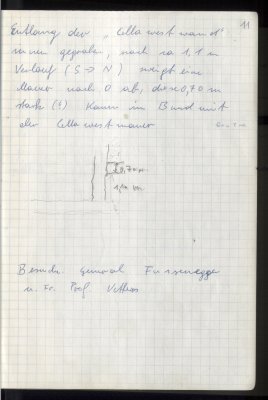 11
Entlang der "Cella west wand"
innen gegraben, nach ca 1,1 m
Verlauf (S → N) zweigt eine
Mauer nach O ab, diese 0,70 m
stark (!) kaum im Bund mit
der Cella west mauer
0,70 m
1,10 m
Besuch General
u. Fr. Prof. Vetters